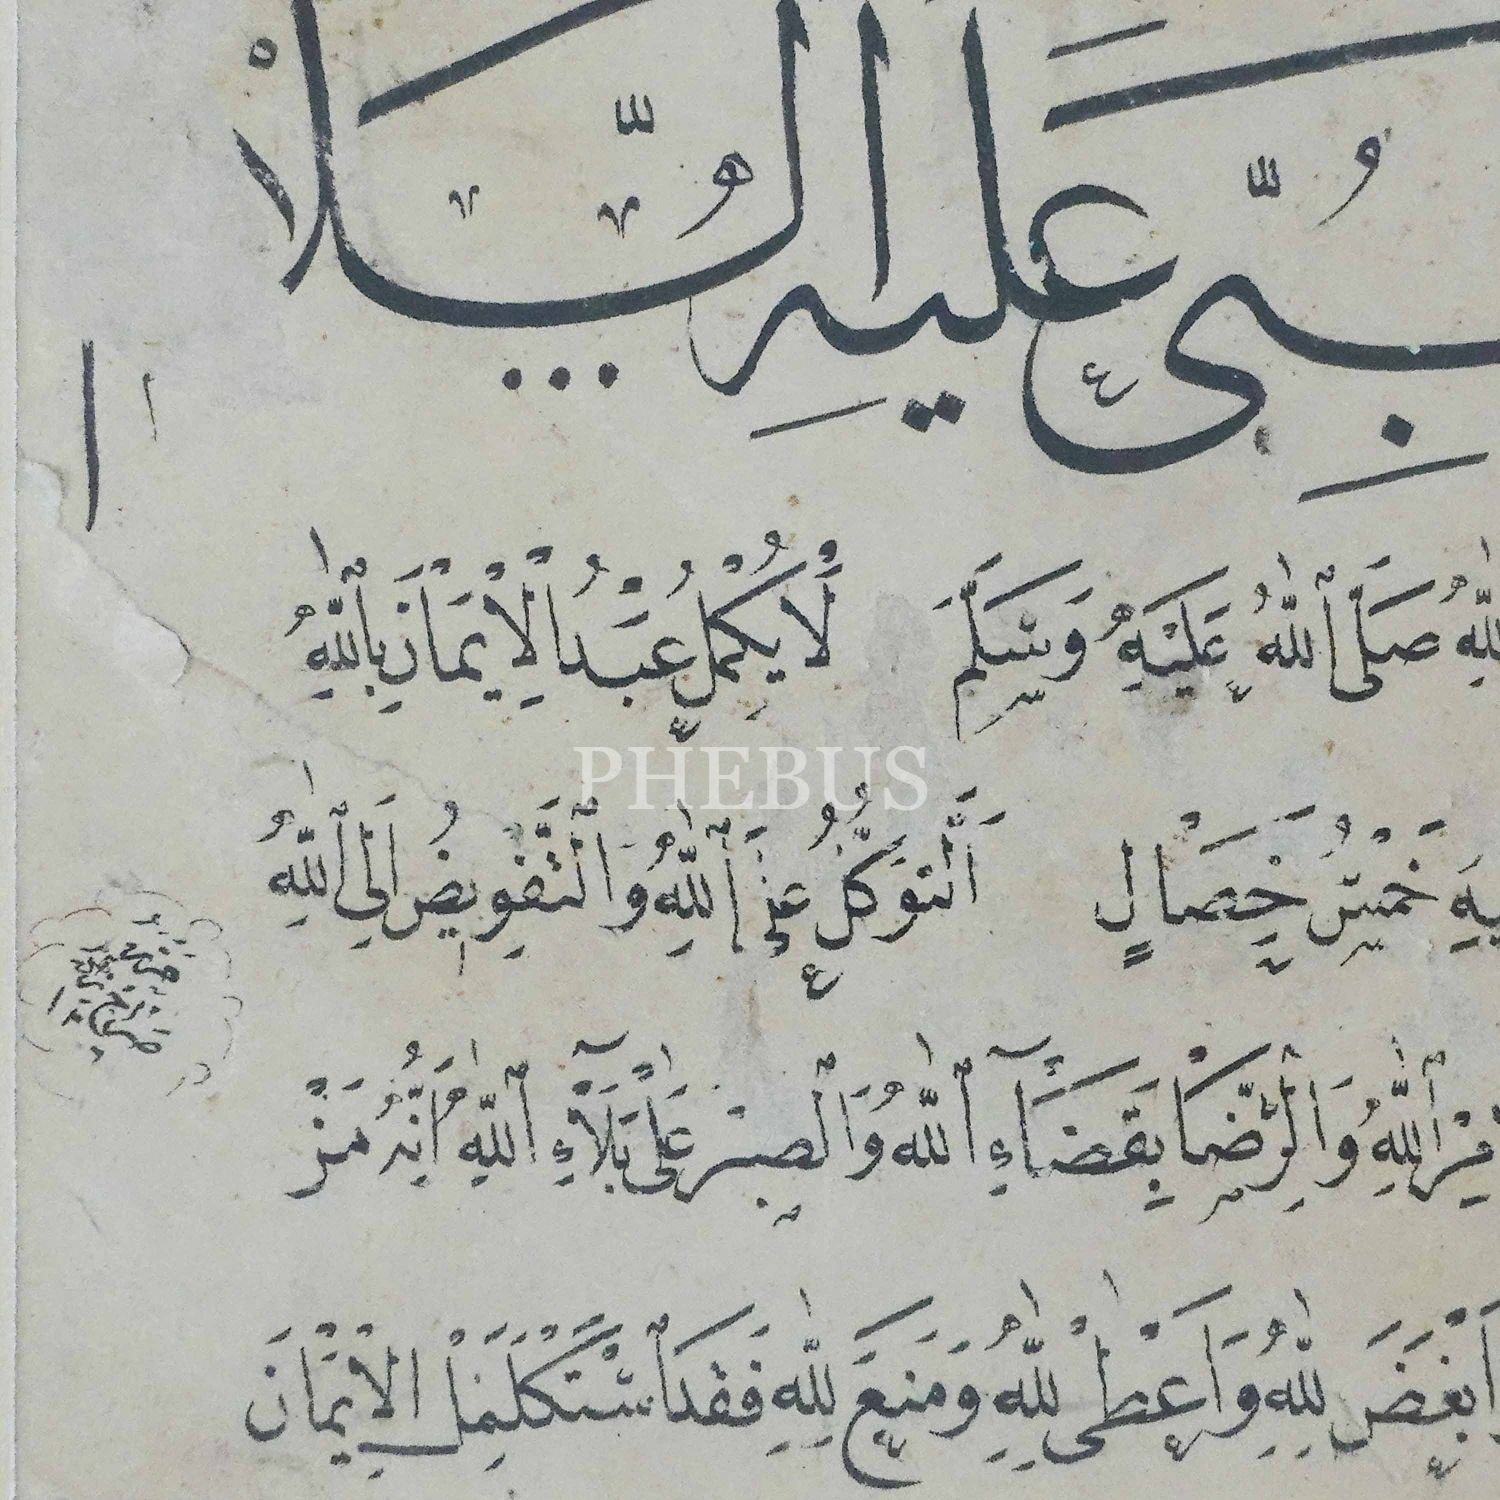 بِي عَلَيْهِ السَّلَامُ
اللهِ صَلَّى اللهُ عَلَيْهِ وَسَلَّمَ لَا يُكْمِلُ عَبْدُ الْإِيمَانَ بِاللهِ
PHEBUS
فِيهِ خَمْسُ خِصَالٍ اَلتَّوَكُّلُ عَلَى اللهِ وَالتَّفْوِيضُ اِلَى اللهِ
مْرِ اللهِ وَالرِّضَا بِقَضَآءِ اللهِ وَالصَّبْرُ عَلَى بَلَآءِ اللهِ اِنَّهُ مَنْ
اَبْغَضَ لِلهِ وَاَعْطَى لِلهِ وَمَنَعَ لِلهِ فَقَدِ اسْتَكْمَلَ الْاِيمَانَ